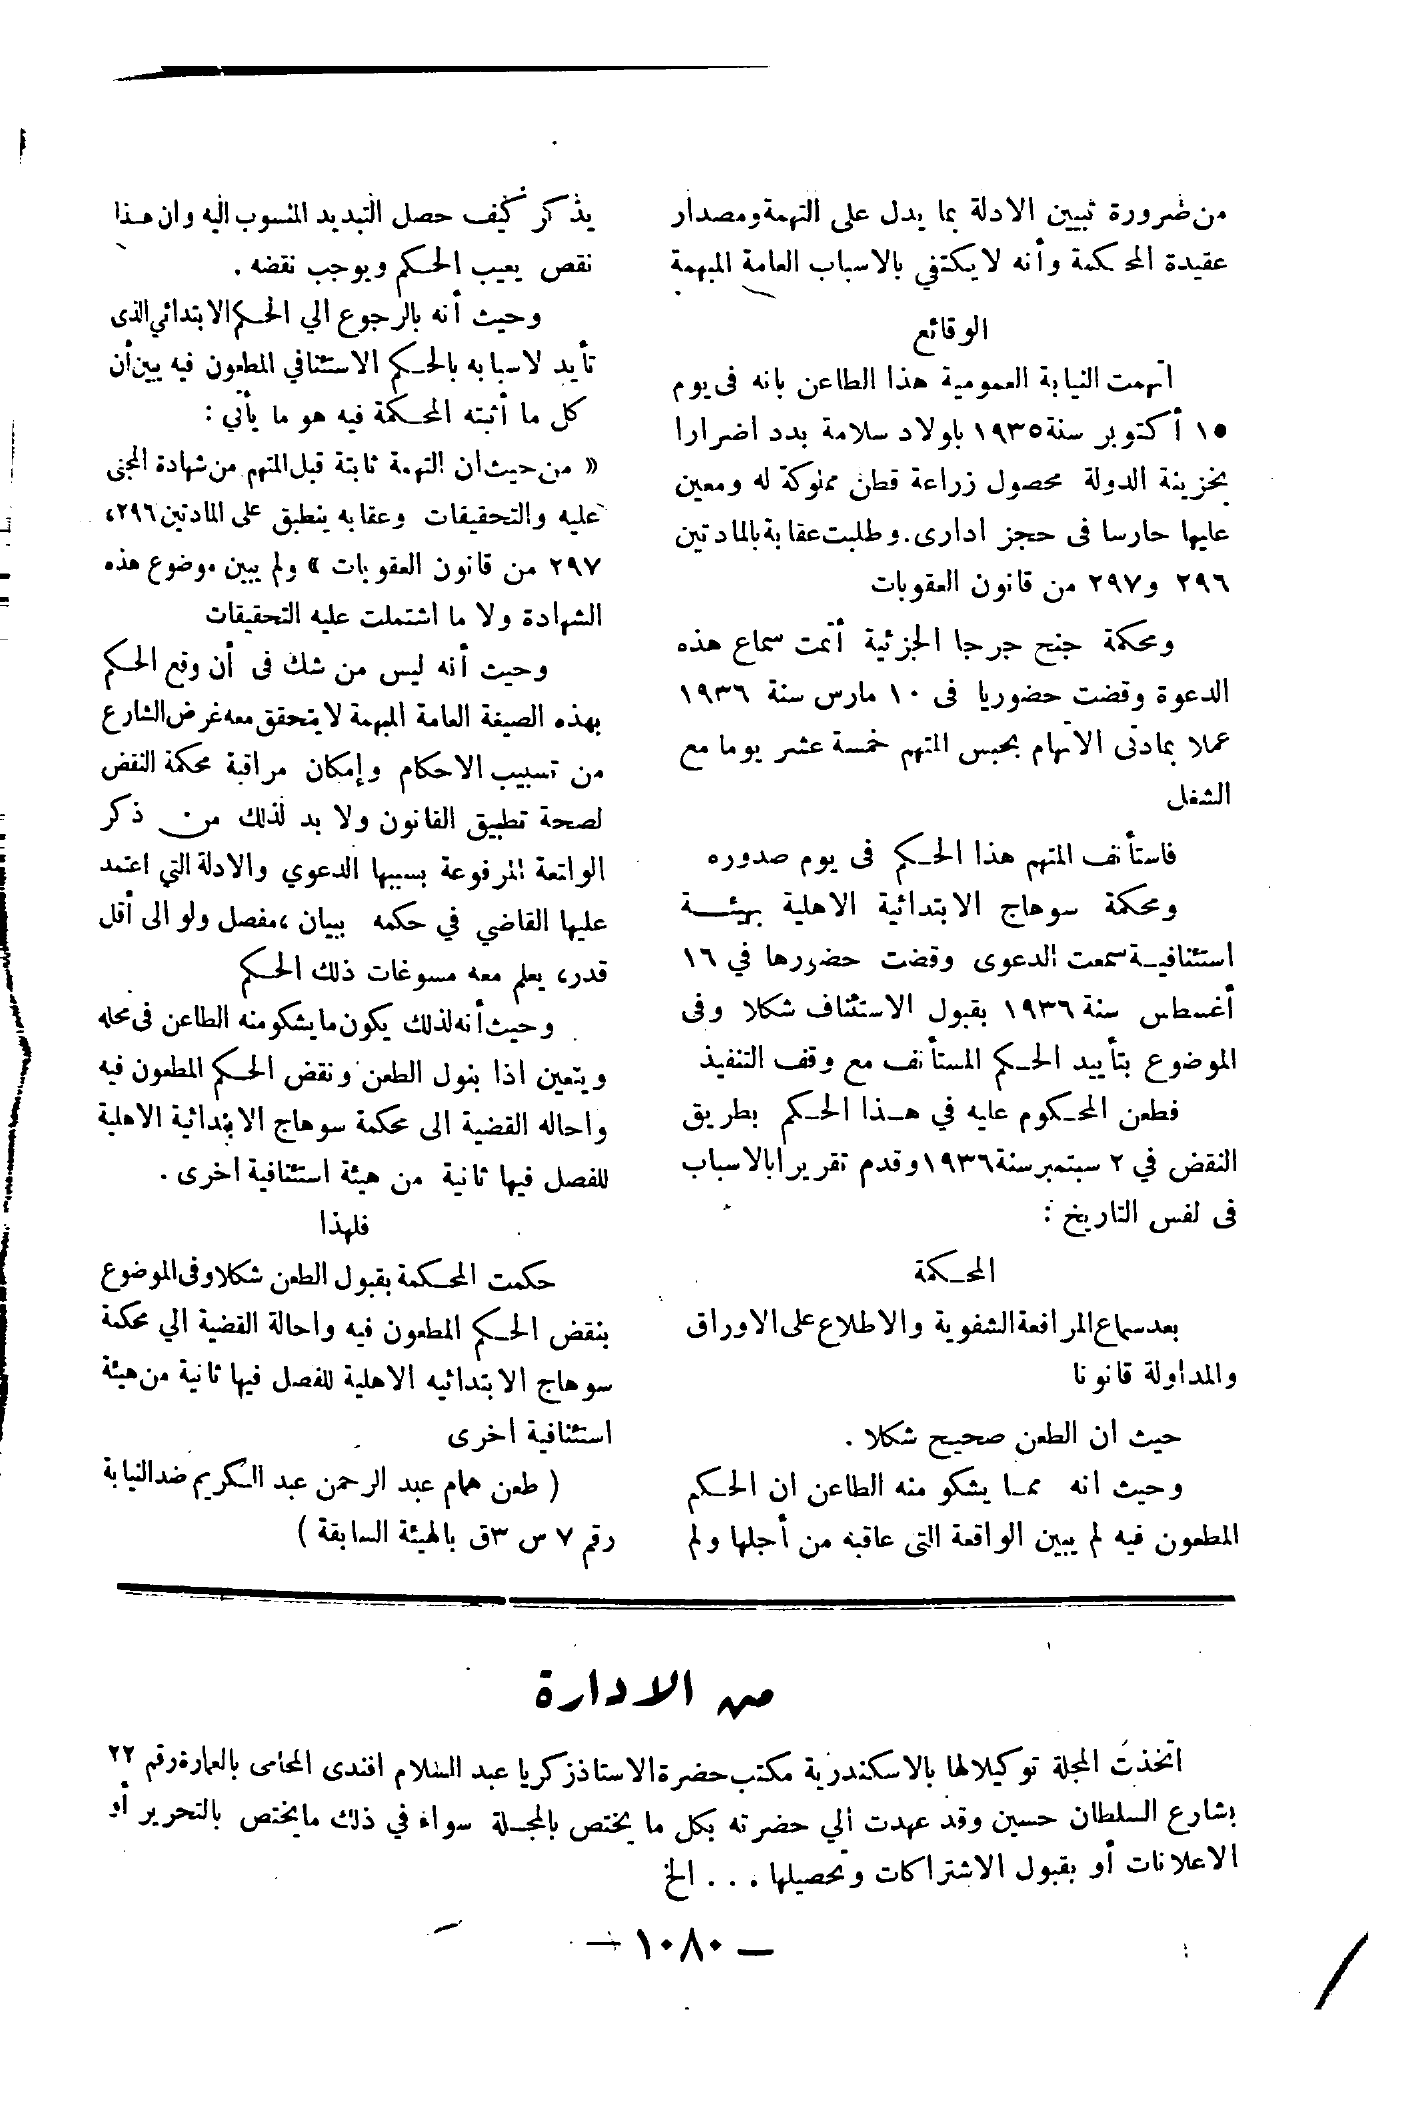 من ضرورة تبيين الادلة بما يدل على التهمة ومصدار
عقيدة المحكمة وأنه لا يكتفي بالاسباب العامة المبهمة
الوقائع
اتهمت النيابة العمومية هذا الطاعن بانه فى يوم
١٥ أكتوبر سنة ١٩٣٥ باولاد سلامة بدد اضرارا
بخزينة الدولة محصول زراعة قطن مملوكة له ومعين
عليها حارسا فى حجز ادارى. وطلبت عقابة بالمادتين
٢٩٦ و٢٩٧ من قانون العقوبات
ومحكمة جنح جرجا الجزئية أتمت سماع هذه
الدعوة وقضت حضوريا فى ١٠ مارس سنة ١٩٣٦
عملا بمادتى الاتهام بحبس المتهم خمسة عشر يوما مع
الشغل
فاستأنف المتهم هذا الحكم فى يوم صدوره
ومحكمة سوهاج الابتدائية الاهلية بهيئة
استئنافية سمعت الدعوى وقضت حضوريا في ١٦
أغسطس سنة ١٩٣٦ بقبول الاستئناف شكلا وفى
الموضوع بتأييد الحكم المستأنف مع وقف التنفيذ
فطعن المحكوم عليه في هذا الحكم بطريق
النقض في ٢ سبتمبر سنة ١٩٣٦ وقدم تقريرا بالاسباب
فى نفس التاريخ :
المحكمة
بعد سماع المرافعة الشفوية والاطلاع على الاوراق
والمداولة قانونا
حيث ان الطعن صحيح شكلا .
وحيث انه مما يشكو منه الطاعن ان الحكم
المطعون فيه لم يبين الواقعة التى عاقبه من أجلها ولم
يذكر كيف حصل التبديد المنسوب اليه وان هذا
نقص يعيب الحكم ويوجب نقضه .
وحيث أنه بالرجوع الي الحكم الابتدائي الذى
تأيد لاسبابه بالحكم الاستئنافي المطعون فيه يبين أن
كل ما أثبته المحكمة فيه هو ما يأتي :
« من حيث ان التهمة ثابتة قبل المتهم من شهادة المجنى
عليه والتحقيقات وعقابه ينطبق على المادتين ٢٩٦،
٢٩٧ من قانون العقوبات » ولم يبين موضوع هذه
الشهادة ولا ما اشتملت عليه التحقيقات
وحيث أنه ليس من شك فى أن وقع الحكم
بهذه الصيغة العامة المبهمة لا يتحقق معه غرض الشارع
من تسبيب الاحكام وإمكان مراقبة محكمة النقض
لصحة تطبيق القانون ولا بد لذلك من ذكر
الواقعة المرفوعة بسببها الدعوي والادلة التي اعتمد
عليها القاضي في حكمه ببيان ،مفصل ولو الى أقل
قدر، يعلم معه مسوغات ذلك الحكم
وحيث أنه لذلك يكون ما يشكو منه الطاعن فى محله
ويتعين اذا بنول الطعن ونقض الحكم المطعون فيه
واحاله القضية الى محكمة سوهاج الابتدائية الاهلية
للفصل فيها ثانية من هيئة استئنافية اخرى .
فلهذا
حكمت المحكمة بقبول الطعن شكلا وفى الموضوع
بنقض الحكم المطعون فيه واحالة القضية الي محكمة
سوهاج الابتدائيه الاهلية للفصل فيها ثانية من هيئة
استئنافية اخرى
( طعن همام عبد الرحمن عبد الكريم ضد النيابة
رقم ٧ س ٣ق بالهيئة السابقة )
من الادارة
اتخذت المجلة توكيلا لها بالاسكندرية مكتب حضرة الاستاذ زكريا عبد السلام افندى المحامى بالعمارة رقم ٢٢
بشارع السلطان حسين وقد عهدت الي حضرته بكل ما يختص بالمجلة سواء في ذلك ما يختص بالتحرير أو
الاعلانات أو بقبول الاشتراكات وتحصيلها . . . الخ
— ١٠٨٠ —